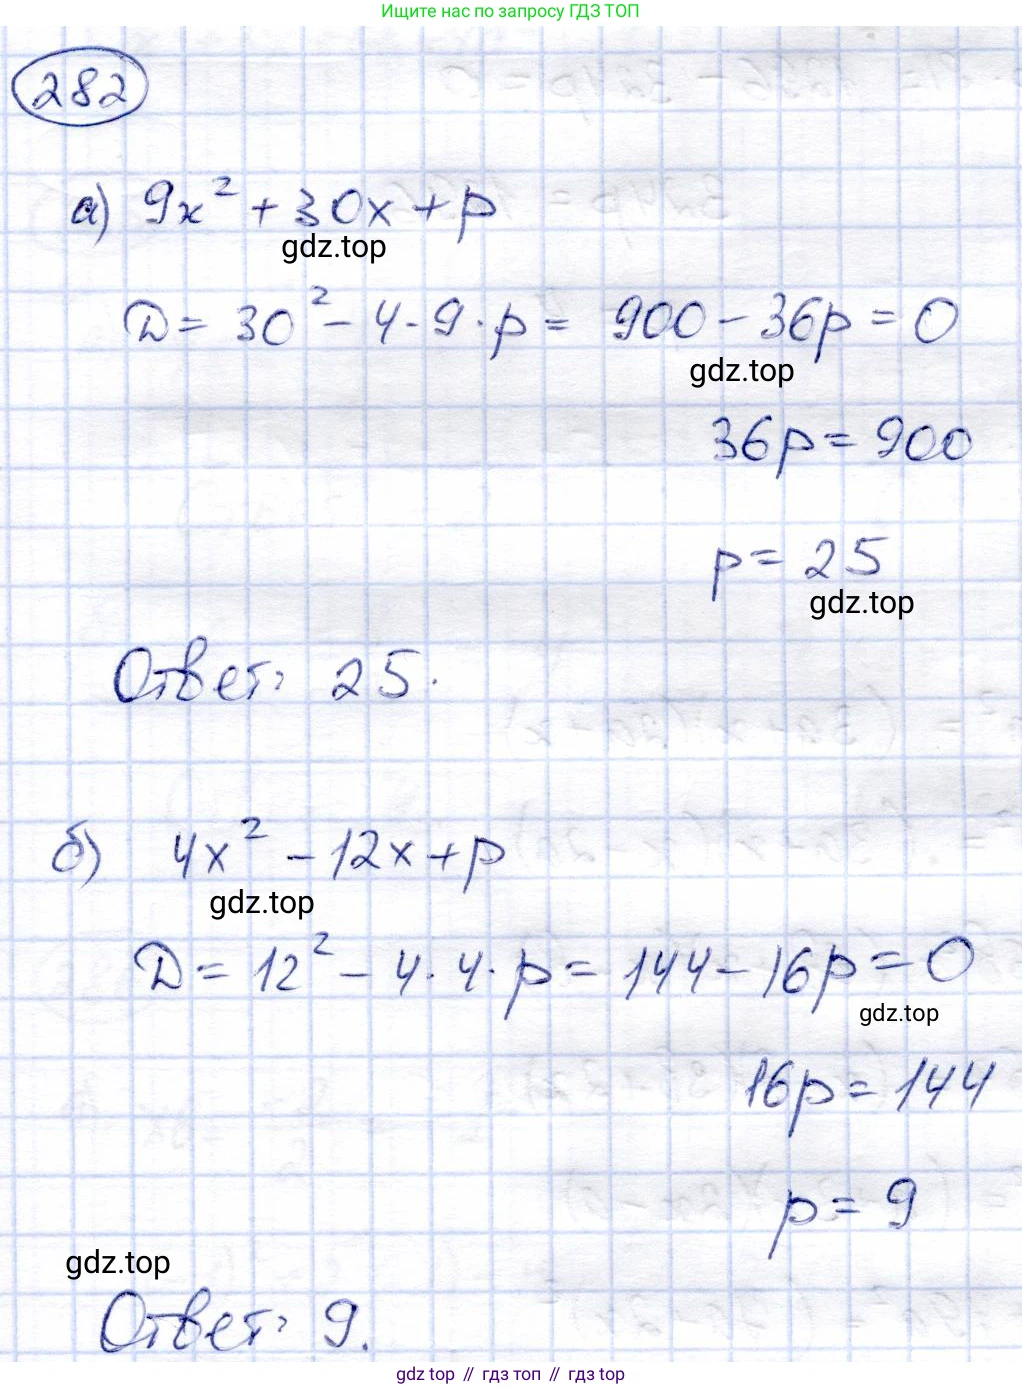 Ищите нас по запросу ГДЗ ТОП
282
а) 9x² + 30x + p
gdz.top
D = 30² - 4 · 9 · p = 900 - 36p = 0
gdz.top
36p = 900
p = 25
gdz.top
Ответ: 25.
б) 4x² - 12x + p
gdz.top
D = 12² - 4 · 4 · p = 144 - 16p = 0
gdz.top
16p = 144
p = 9
gdz.top
Ответ: 9.
gdz.top // гдз топ // гдз top